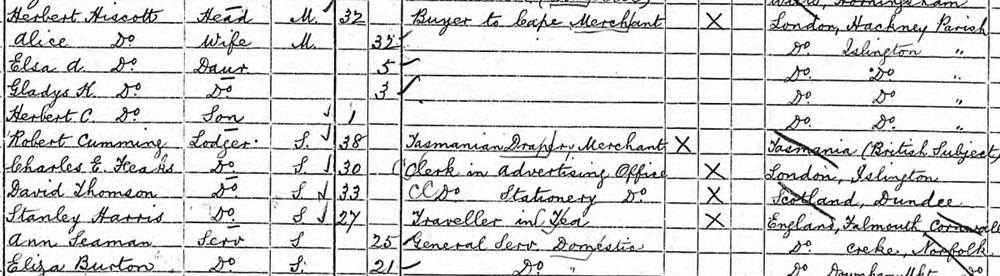 Herbert Hiscott Head M. 32 Buyer to Cape Merchant X London, Hackney Parish
Alice Do Wife M. 32 Do. Islington "
Elsa A. Do Daur 5 Do. Do "
Gladys H. Do Do 3 Do. Do. "
Herbert C. Do Son 1 Do. Do. "
Robert Cumming Lodger. S. 38 Tasmanian Drapery Merchant X Tasmania (British Subject)
Charles E. Do S. 30 Clerk in Advertising Office X London, Islington
David Thomson Do S 33 Do Stationery Do. X Scotland, Dundee
Stanley Harris Do. S 27 Traveller in Tea X England, Falmouth, Cornwall
Ann Seaman Serv S 25 General Serv Domestic Do. Creke, Norfolk
Eliza Burton Do S. 21 Do " Do